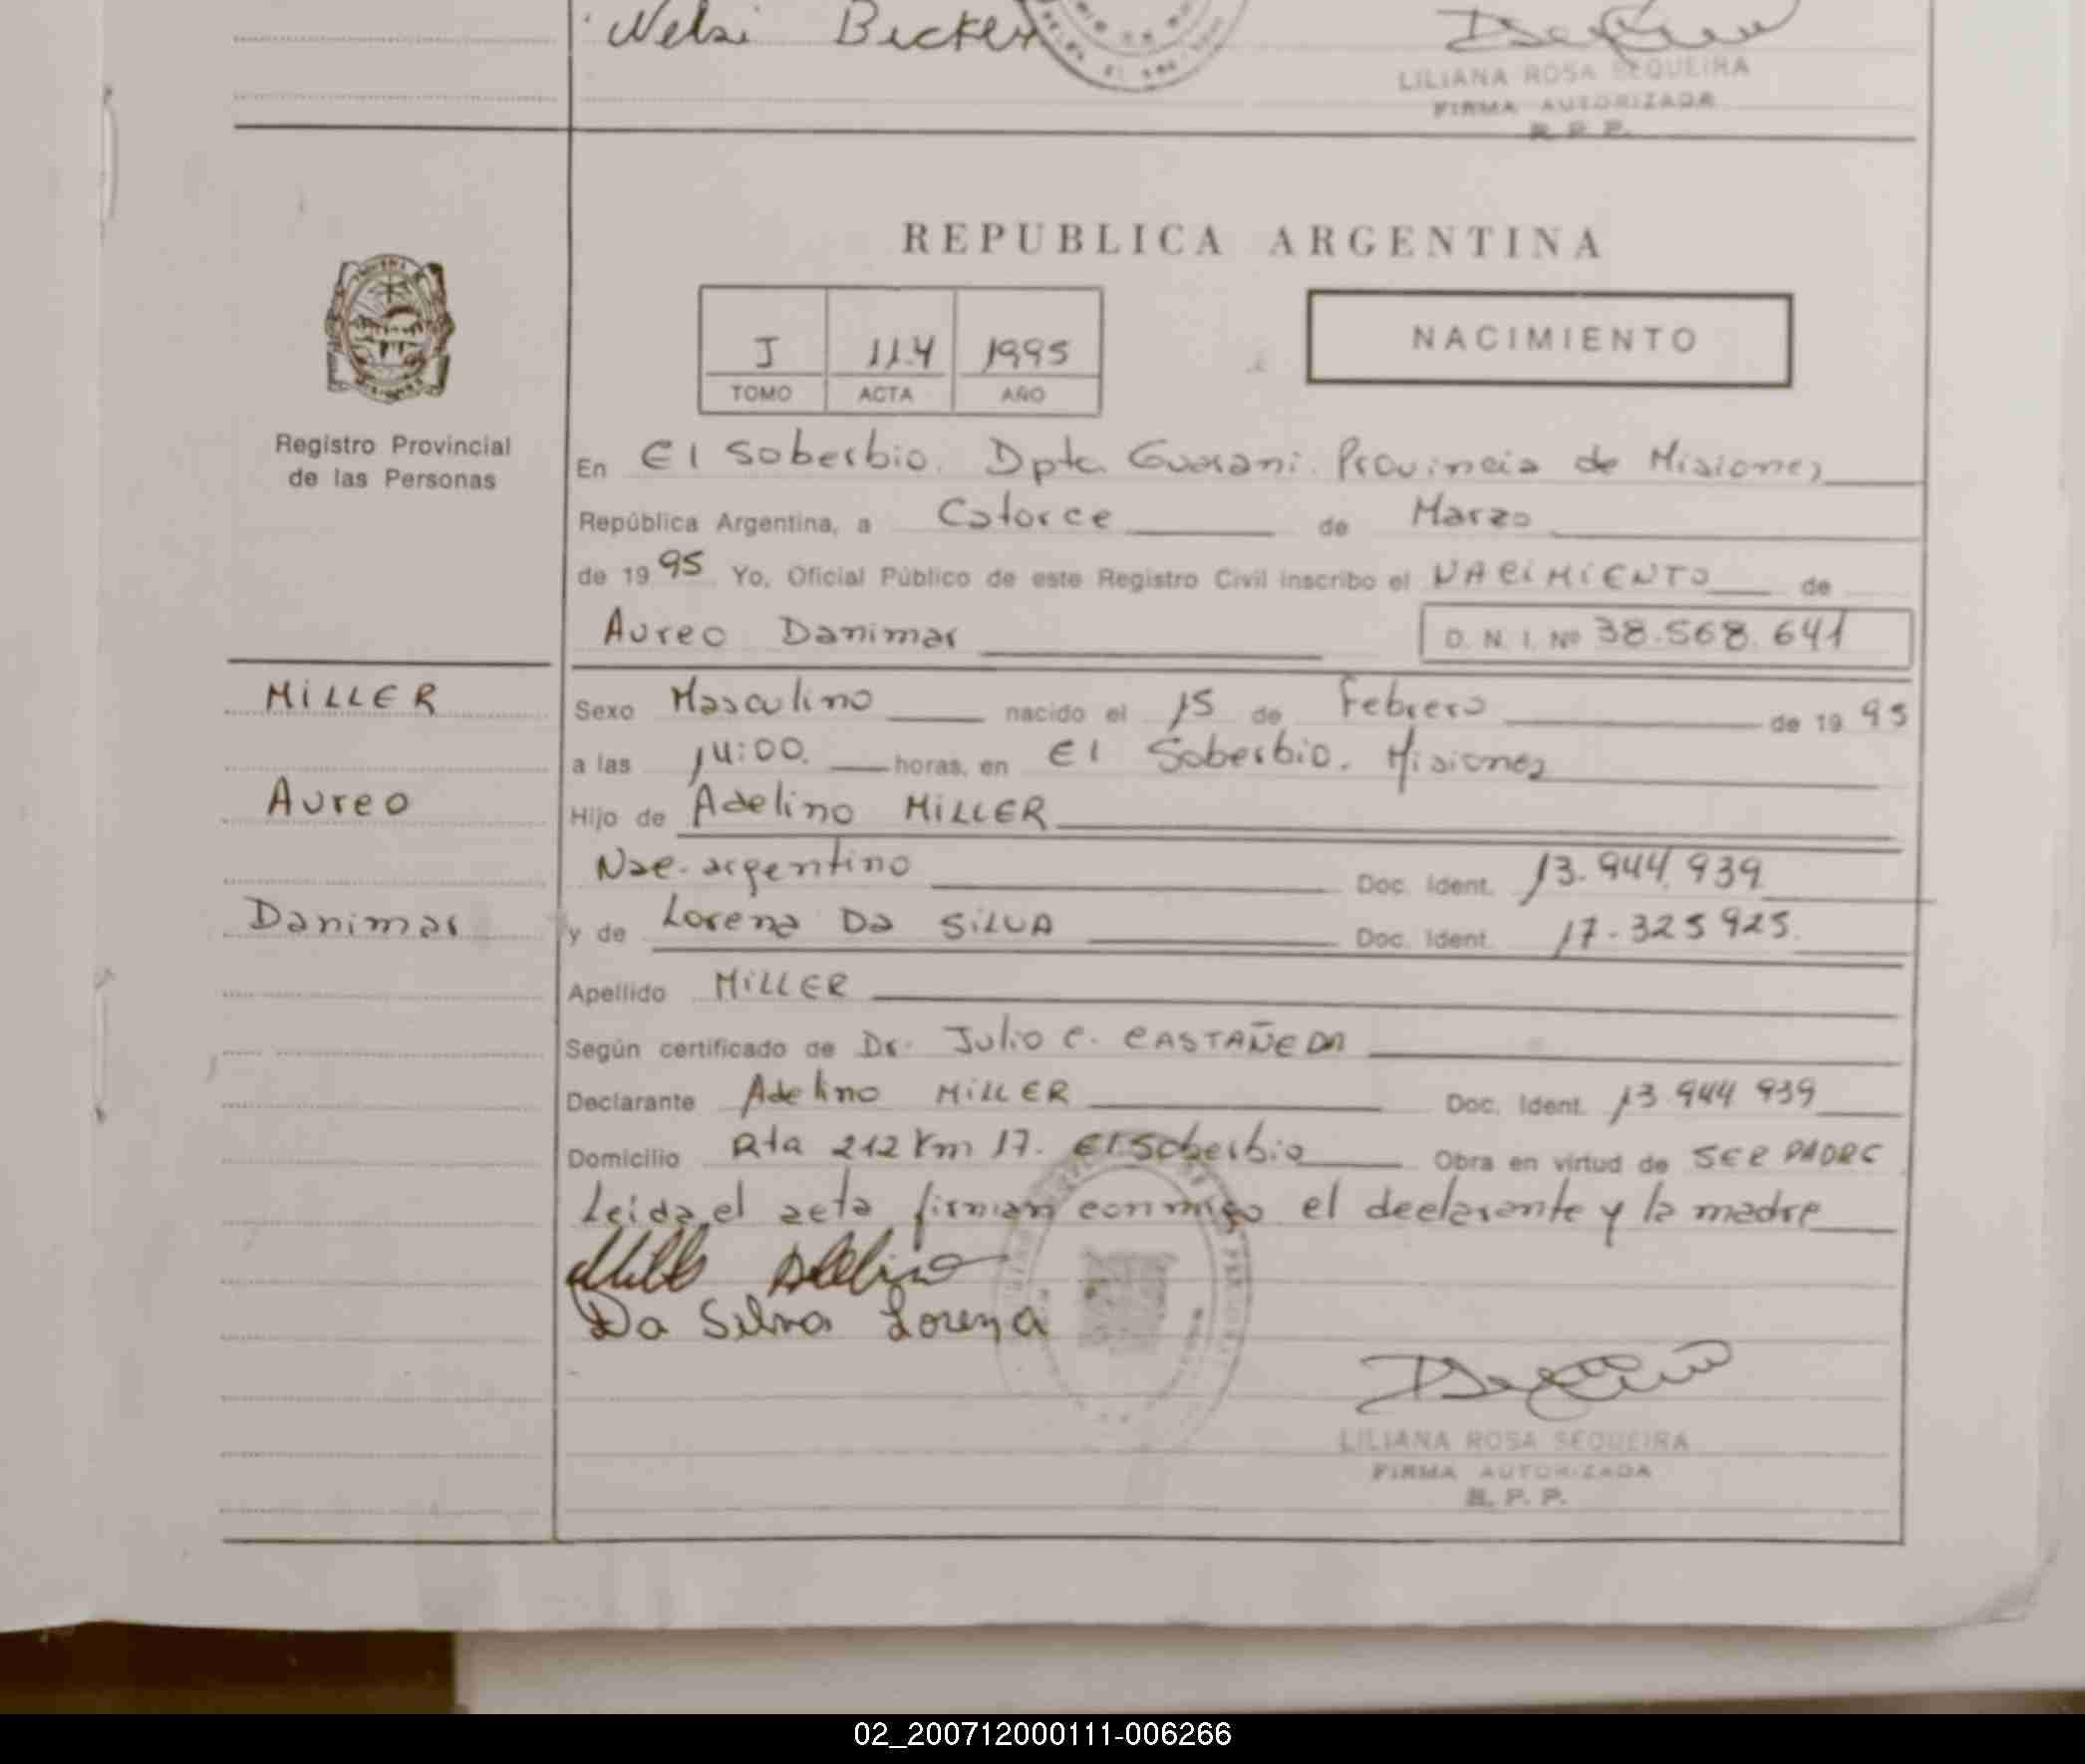 Nelsi Becker
LILIANA ROSA SEQUEIRA
FIRMA AUTORIZADA
R. P. P.
REPUBLICA ARGENTINA
J 114 1995
TOMO ACTA AÑO
NACIMIENTO
Registro Provincial
de las Personas
En El Soberbio. Dpto. Guarani. Provincia de Misiones
República Argentina, a Catorce de Marzo
de 1995 Yo, Oficial Público de este Registro Civil inscribo el NACIMIENTO de
Aureo Danimar D. N. I. Nº 38.568.641
MILLER
Sexo Masculino nacido el 15 de Febrero de 1995
a las 14:00. horas, en El Soberbio. Misiones
Aureo
Hijo de Adelino MILLER
Nac. argentino Doc. Ident. 13.944.939
Danimar
y de Lorena Da SILVA Doc. Ident. 17.325925.
Apellido MILLER
Según certificado de Dr. Julio C. CASTAÑEDA
Declarante Adelino MILLER Doc. Ident. 13 944 939
Domicilio Rta 212 Km 17. El Soberbio Obra en virtud de SER PADRE
Leida el acta firman conmigo el declarante y la madre
Da Silva Lorena
LILIANA ROSA SEQUEIRA
FIRMA AUTORIZADA
R. P. P.
02_200712000111-006266